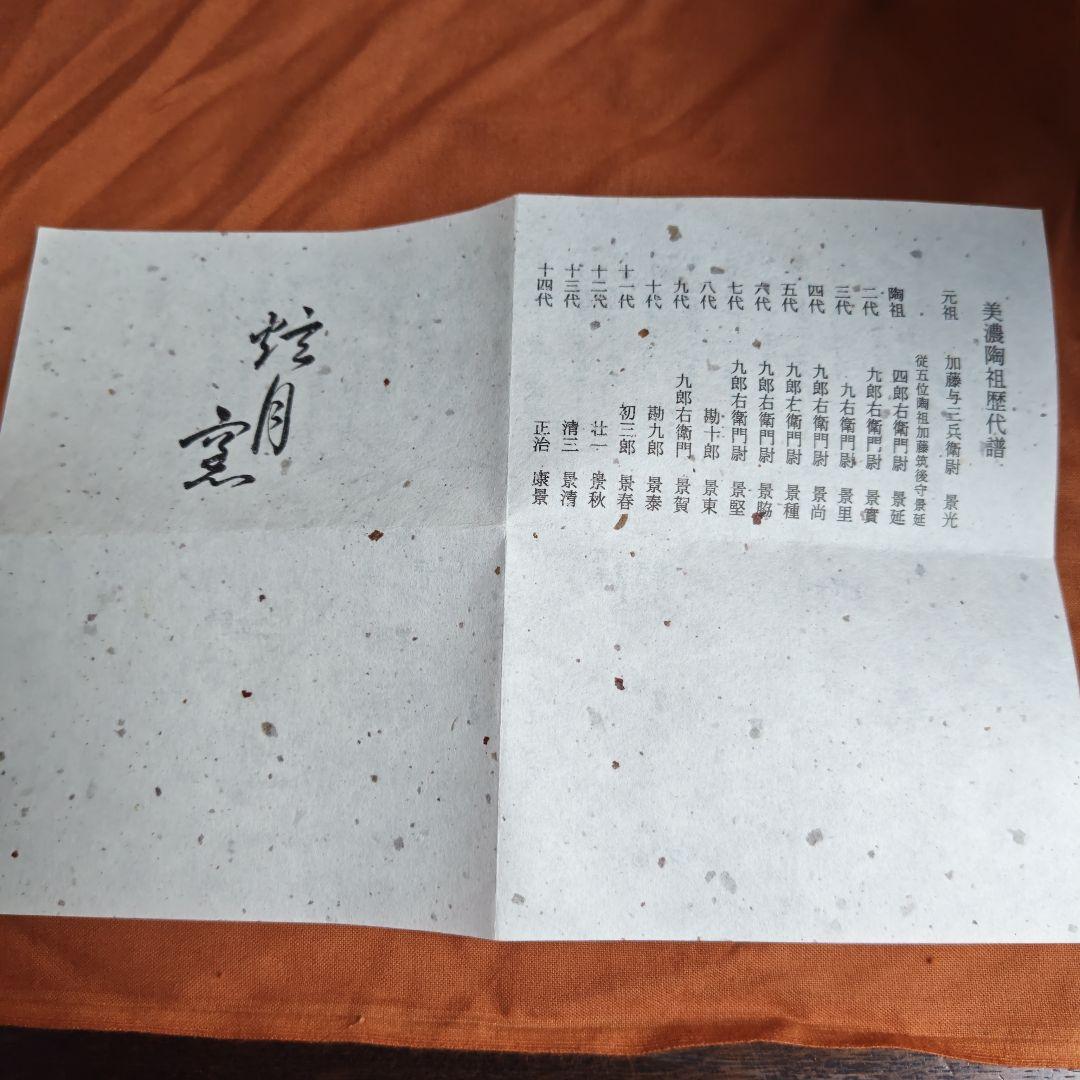 美濃陶祖歴代譜
元祖 加藤与三兵衛尉 景光
従五位陶祖加藤筑後守景延
陶祖 四郎右衛門尉 景延
二代 九郎右衛門尉 景實
三代 九右衛門尉 景里
四代 九郎右衛門尉 景尚
五代 九郎右衛門尉 景種
六代 九郎右衛門尉 景脇
七代 九郎右衛門尉 景堅
八代 勘十郎 景東
九代 九郎右衛門 景賀
十代 勘九郎 景泰
十一代 初三郎 景春
十二代 壮一 景秋
十三代 清三 景清
十四代 正治 康景
炫月
窯